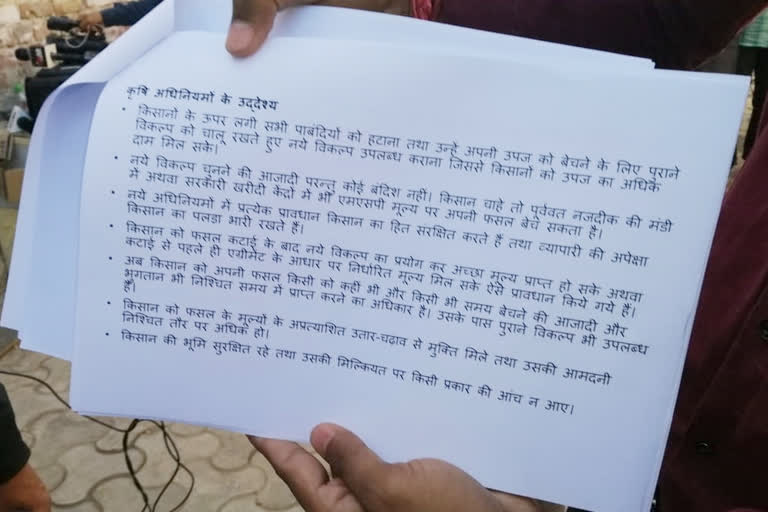 कृषि अधिनियमों के उद्देश्य
• किसानों के ऊपर लगी सभी पाबंदियों को हटाना तथा उन्हें अपनी उपज को बेचने के लिए पुराने
विकल्प को चालू रखते हुए नये विकल्प उपलब्ध कराना जिससे किसानों को उपज का अधिक
दाम मिल सके।
• नये विकल्प चुनने की आजादी परन्तु कोई बंदिश नहीं। किसान चाहे तो पूर्ववत नजदीक की मंडी
में अथवा सरकारी खरीदी केंद्रों में भी एमएसपी मूल्य पर अपनी फसल बेच सकता है।
• नये अधिनियमों में प्रत्येक प्रावधान किसान का हित संरक्षित करते हैं तथा व्यापारी की अपेक्षा
किसान का पलड़ा भारी रखते हैं।
• किसान को फसल कटाई के बाद नये विकल्प का प्रयोग कर अच्छा मूल्य प्राप्त हो सके अथवा
कटाई से पहले ही एग्रीमेंट के आधार पर निर्धारित मूल्य मिल सके ऐसे प्रावधान किये गये हैं।
• अब किसान को अपनी फसल किसी को कहीं भी और किसी भी समय बेचने की आजादी और
भुगतान भी निश्चित समय में प्राप्त करने का अधिकार है। उसके पास पुराने विकल्प भी उपलब्ध
हैं।
• किसान को फसल के मूल्यों के अप्रत्याशित उतार-चढ़ाव से मुक्ति मिले तथा उसकी आमदनी
निश्चित तौर पर अधिक हो।
• किसान की भूमि सुरक्षित रहे तथा उसकी मिल्कियत पर किसी प्रकार की आंच न आए।